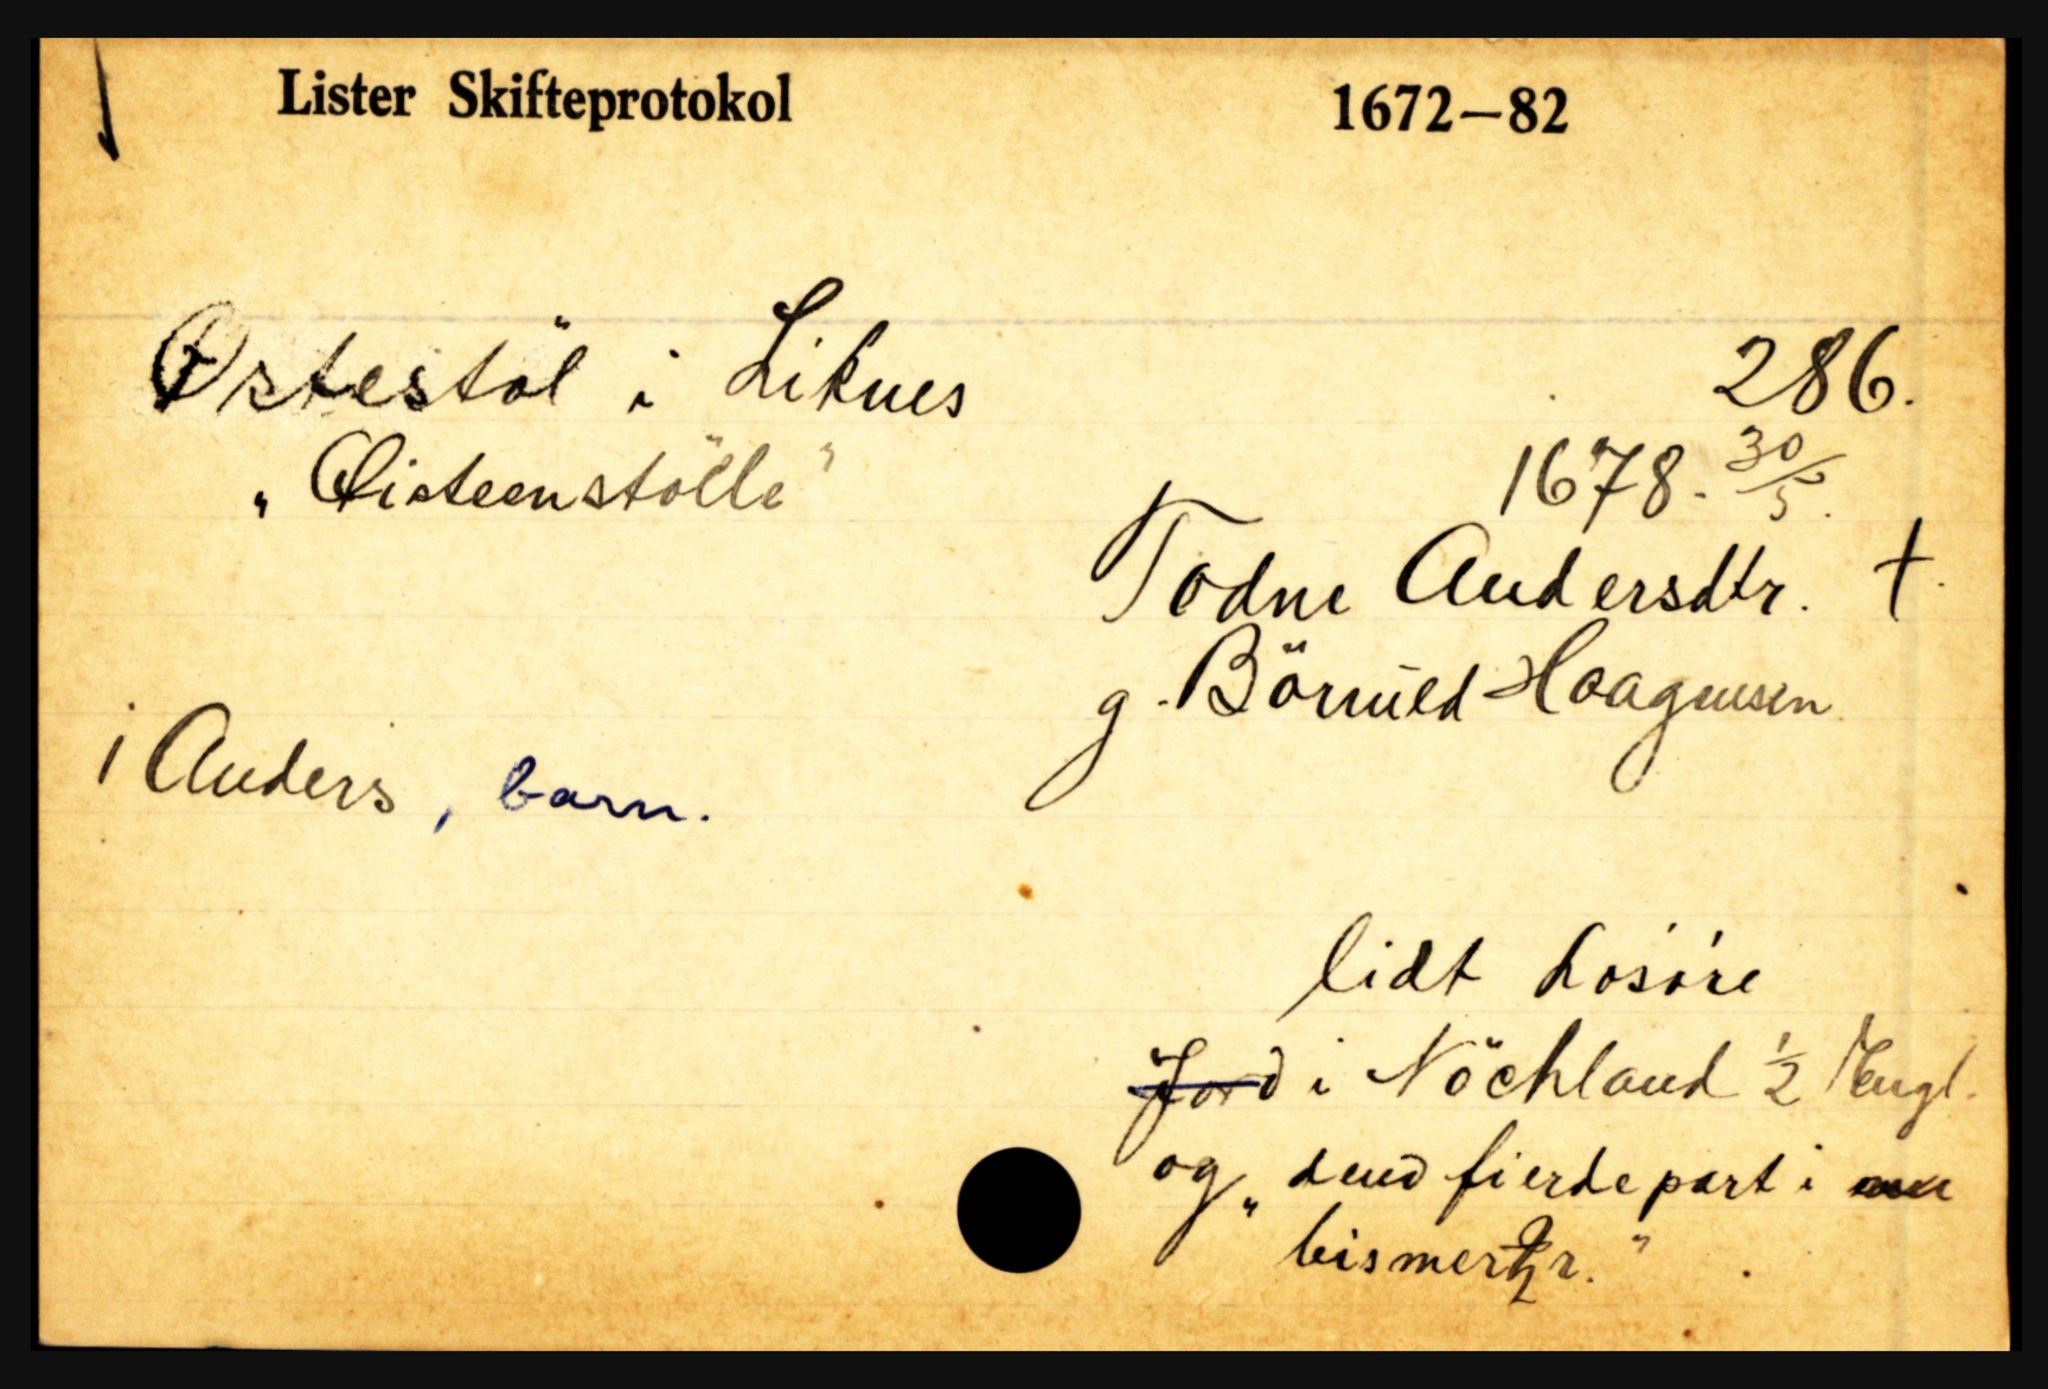 Lister Skifteprotokol 1672–82
Østestöl i Liknes 286.
„Øisteenstölle" 1678. 30/5.
Todne Andersdtr. †.
g. Börruld Haagensen
1 Anders, barn.
lidt Losøre
Jord i Nöchland ½ Engl.
og „ dend fierde part i
bismerpr."